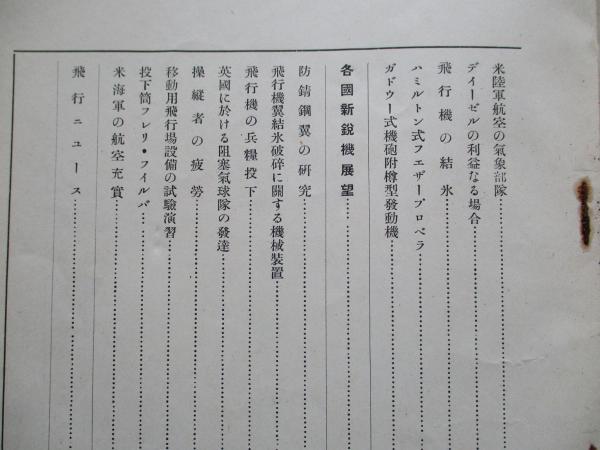 米陸軍航空の氣象部隊
デイーゼルの利益なる場合
飛行機の結氷
ハミルトン式フエザープロペラ
ガドウー式機砲附樽型發動機
各國新銳機展望
防錆鋼翼の硏究
飛行機翼結氷破碎に關する機械裝置
飛行機の兵糧投下
英國に於ける阻塞氣球隊の發達
操縱者の疲勞
移動用飛行場設備の試驗演習
投下筒フレリ・フイルバ
米海軍の航空充實
飛行ニュース